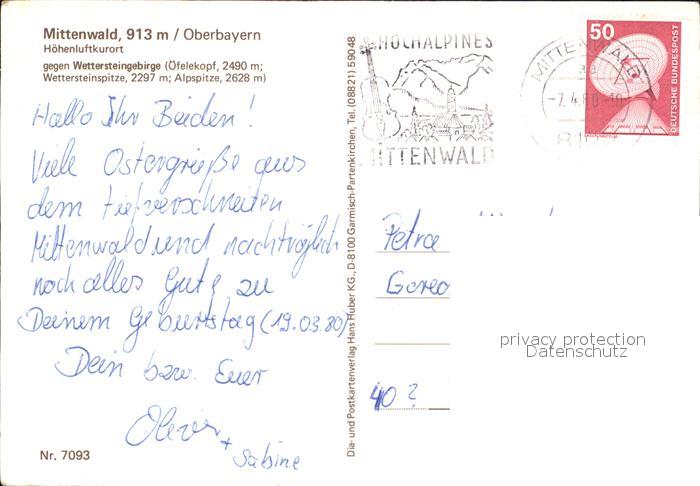 Mittenwald, 913 m / Oberbayern
Höhenluftkurort
gegen Wettersteingebirge (Öfelekopf, 2490 m;
Wettersteinspitze, 2297 m; Alpspitze, 2628 m)
Hallo Ihr Beiden!
Viele Ostergrüße aus
dem tiefverschneiten
Mittenwald und nachträglich
noch alles Gute zu
Deinem Geburtstag (19.03.80)
Dein bzw. Euer
Oliver
+ Sabine
Nr. 7093
Dia- und Postkartenverlag Hans Huber KG., D-8100 Garmisch-Partenkirchen, Tel. (08821) 59048
HOCHALPINES
MITTENWALD
MITTENWALD
-7.4.80-10
50
DEUTSCHE BUNDESPOST
Petra
Gereo
40?
privacy protection
Datenschutz